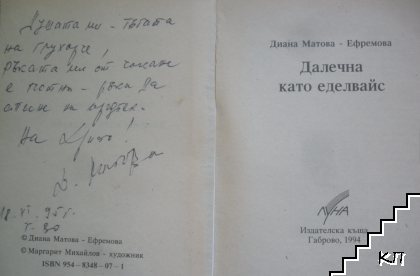 Душата ми - тъгата
на глухаря,
ръката ми от чакане
е
ръка
на
На !
18. VI. 95 г.
© Диана Матова - Ефремова
© Маргарит Михайлов - художник
ISBN 954-8348-07-1
Диана Матова - Ефремова
Далечна
като еделвайс
ЛУНА
Издателска къща
Габрово, 1994
КЛ